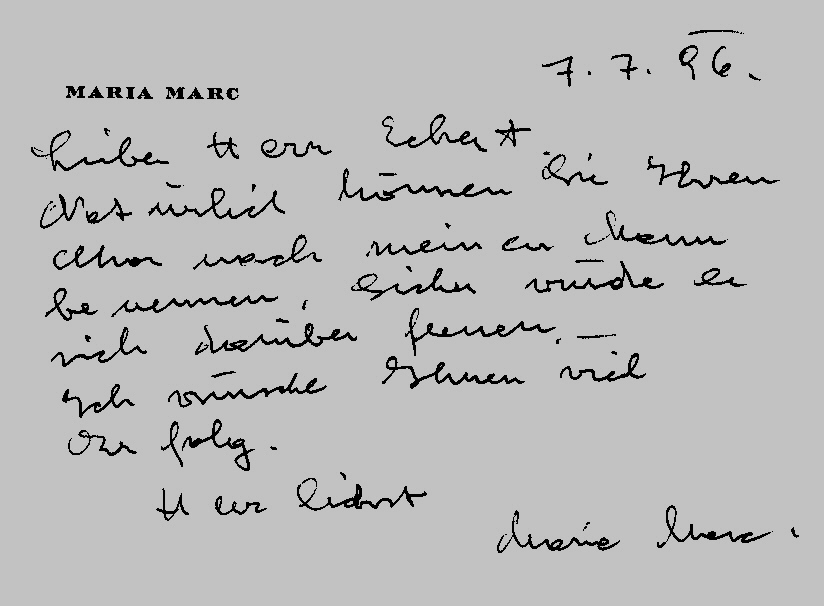 7.7.96.
MARIA MARC
Lieber Herr Eckert
Natürlich können Sie Ihren
Chor nach meinem Mann
benennen, Sicher würde er
sich darüber freuen. —
Ich wünsche Ihnen viel
Erfolg.
Herzlichst
Maria Marc.